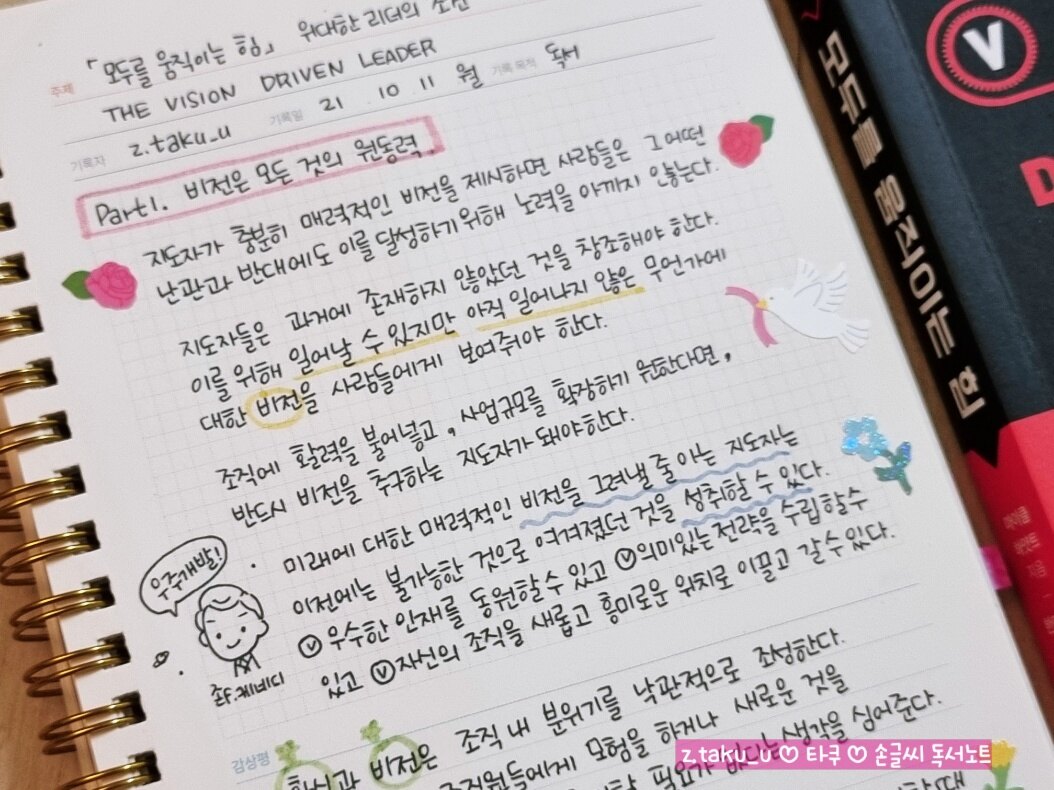 주제 「모두를 움직이는 힘」 위대한 리더의 조건
THE VISION DRIVEN LEADER
기록자 z.taku_u 기록일 21 10 11 월 기록 목적 독서
Part1. 비전은 모든 것의 원동력.
지도자가 충분히 매력적인 비전을 제시하면 사람들은 그 어떤
난관과 반대에도 이를 달성하기 위해 노력을 아끼지 않는다.
지도자들은 과거에 존재하지 않았던 것을 창조해야 한다.
이를 위해 일어날 수 있지만 아직 일어나지 않은 무언가에
대한 비전을 사람들에게 보여줘야 한다.
조직에 활력을 불어넣고, 사업규모를 확장하기 원한다면,
반드시 비전을 추구하는 지도자가 돼야한다.
미래에 대한 매력적인 비전을 그려낼 줄 아는 지도자는
이전에는 불가능한 것으로 여겨졌던 것을 성취할 수 있다.
V 우수한 인재를 동원할 수 있고 V 의미있는 전략을 수립할 수
있고 V 자신의 조직을 새롭고 흥미로운 위치로 이끌고 갈 수 있다.
우주개발!
존F.케네디
감상평
비전은 조직 내 분위기를 낙관적으로 조성한다.
모험을 하거나 새로운 것을
필요가 없다는 생각을 심어준다.
z.taku_u ♡ 타쿠 ♡ 손글씨 독서노트
모두를 움직이는 힘
V
D